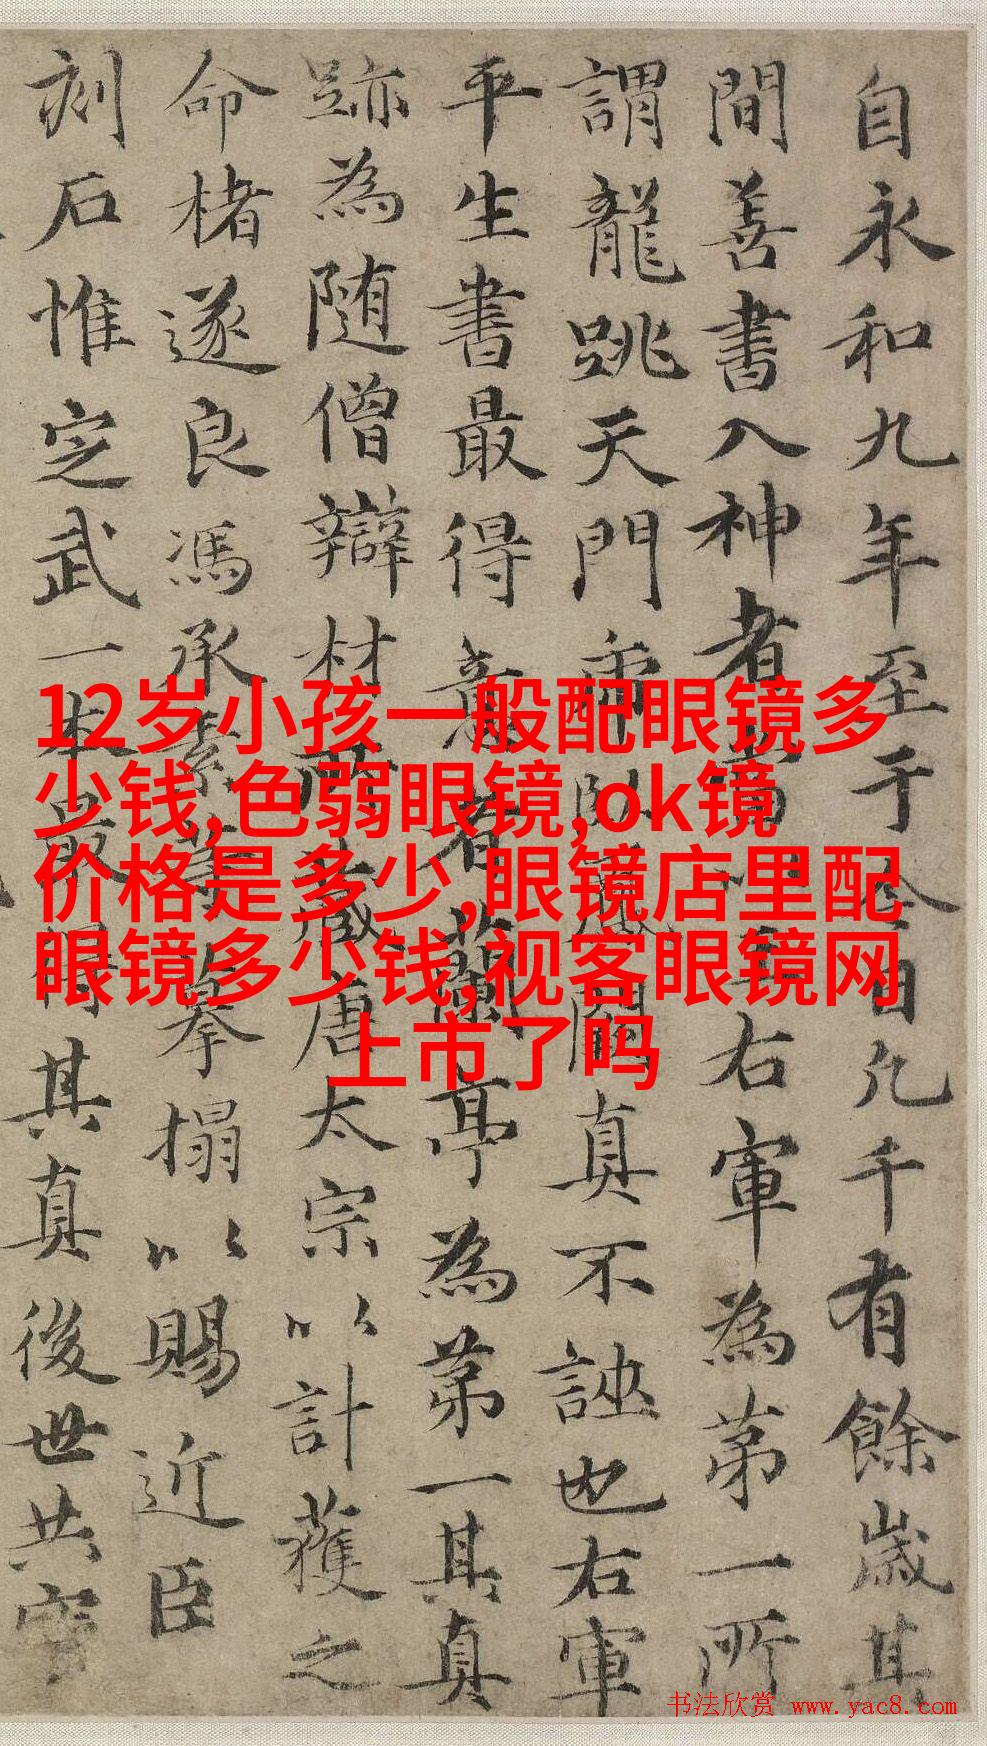 自永和九年至于今日凡千有餘歲其
間善書入神者當以王右軍為第一所
謂龍跳天門虎卧鳳闕真不誣也右軍
平生書最得意者蘭亭為第一其真
跡為随僧辯材所藏唐太宗以計獲之
命楮遂良馮承素等摹搨以賜近臣
刻石惟定武一本最得其真後世共寳
12岁小孩一般配眼镜多
少钱,色弱眼镜,ok镜
价格是多少,眼镜店里配
眼镜多少钱,视客眼镜网
上市了吗
书法欣赏 www.yac8.com